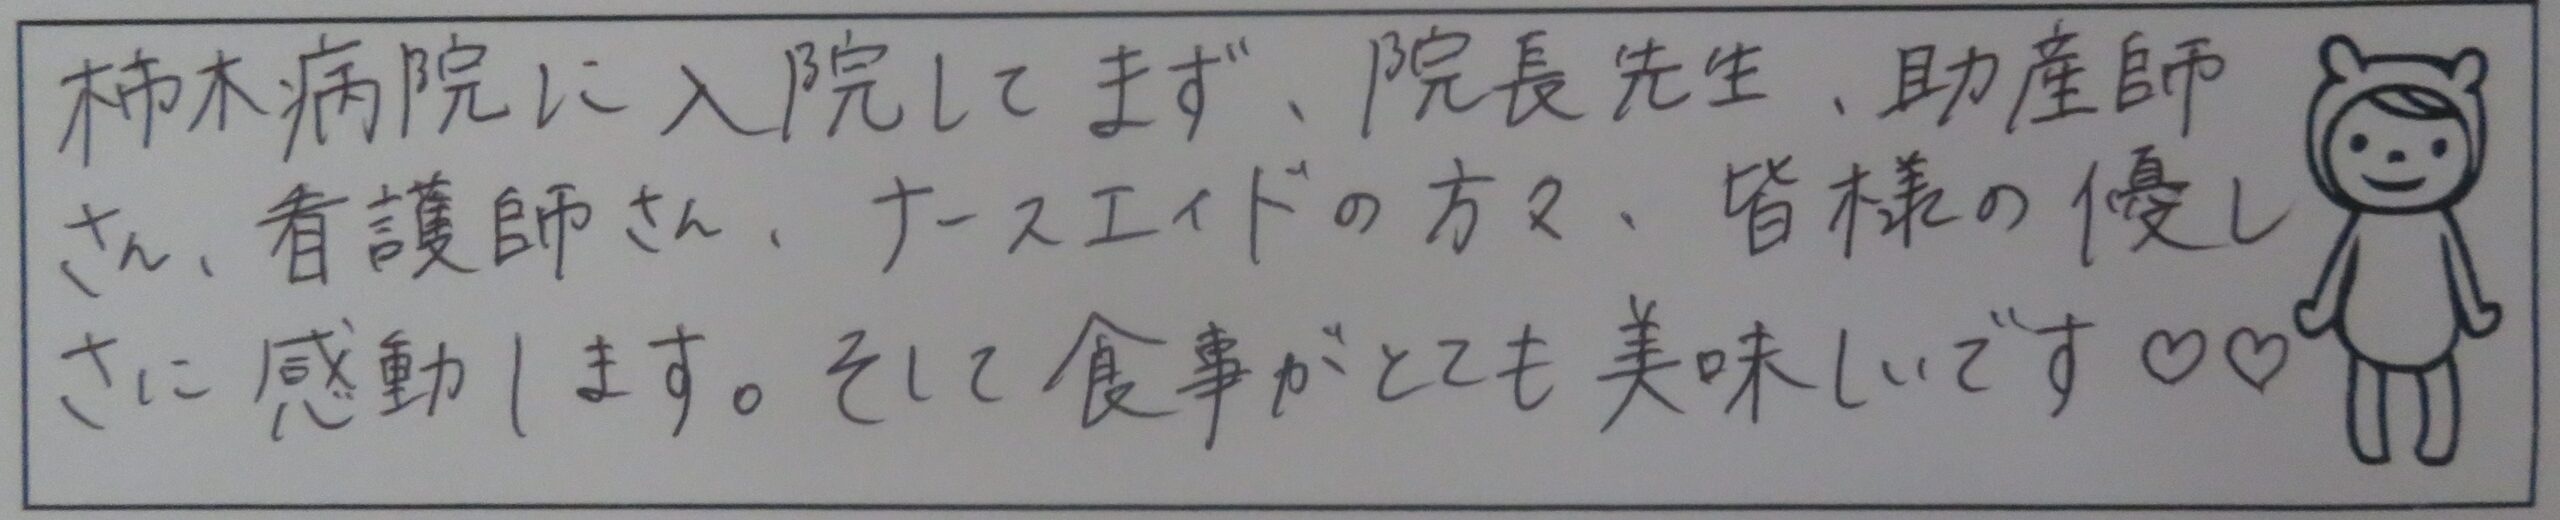 柿木病院に入院してまず、院長先生、助産師
さん、看護師さん、ナースエイドの方々、皆様の優し
さに感動します。そして食事がとても美味しいです♡♡